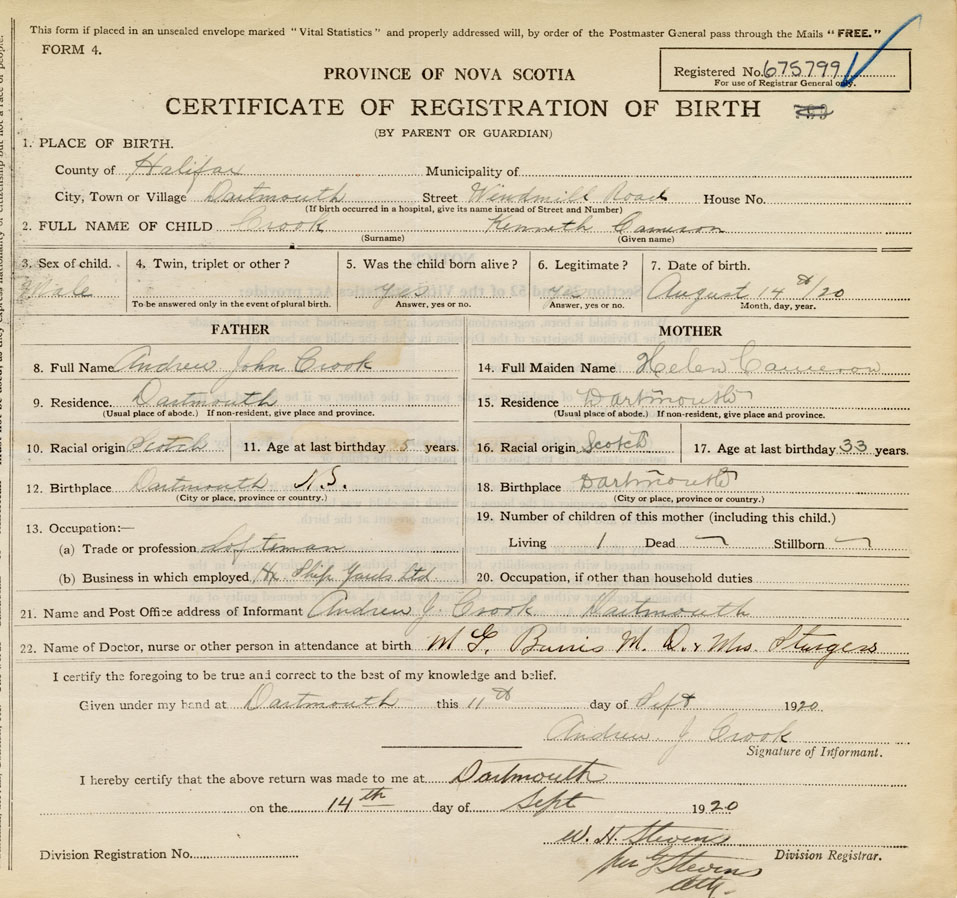 This form if placed in an unsealed envelope marked "Vital Statistics" and properly addressed will, by order of the Postmaster General pass through the Mails "FREE."
FORM 4.
Registered No. 675799
For use of Registrar General only.
PROVINCE OF NOVA SCOTIA
CERTIFICATE OF REGISTRATION OF BIRTH
(BY PARENT OR GUARDIAN)
1. PLACE OF BIRTH.
County of Halifax Municipality of
City, Town or Village Dartmouth Street Windmill Road House No.
(If birth occurred in a hospital, give its name instead of Street and Number)
2. FULL NAME OF CHILD Crook Kenneth Cameron
(Surname) (Given name)
3. Sex of child. 4. Twin, triplet or other? 5. Was the child born alive? 6. Legitimate? 7. Date of birth.
Male yes yes August 14th/20
To be answered only in the event of plural birth. Answer, yes or no. Answer, yes or no. Month, day, year.
FATHER MOTHER
8. Full Name Andrew John Crook 14. Full Maiden Name Helen Cameron
9. Residence. Dartmouth 15. Residence Dartmouth
(Usual place of abode.) If non-resident, give place and province. (Usual place of abode.) If non-resident, give place and province.
10. Racial origin Scotch 11. Age at last birthday 5 years. 16. Racial origin Scotch 17. Age at last birthday 33 years.
12. Birthplace Dartmouth N.S. 18. Birthplace Dartmouth
(City or place, province or country.) (City or place, province or country.)
13. Occupation:— 19. Number of children of this mother (including this child.)
(a) Trade or profession Loftsman Living 1 Dead Stillborn
(b) Business in which employed Hx Ship Yards Ltd 20. Occupation, if other than household duties
21. Name and Post Office address of Informant Andrew J. Crook Dartmouth
22. Name of Doctor, nurse or other person in attendance at birth M G. Burris M. D. & Mrs. Sturgess
I certify the foregoing to be true and correct to the best of my knowledge and belief.
Given under my hand at Dartmouth this 11th day of Sept 1920
Andrew J Crook
Signature of Informant.
I hereby certify that the above return was made to me at Dartmouth
on the 14th day of Sept 1920
W. H. Stevens
per G Stevens
Division Registration No. Division Registrar.